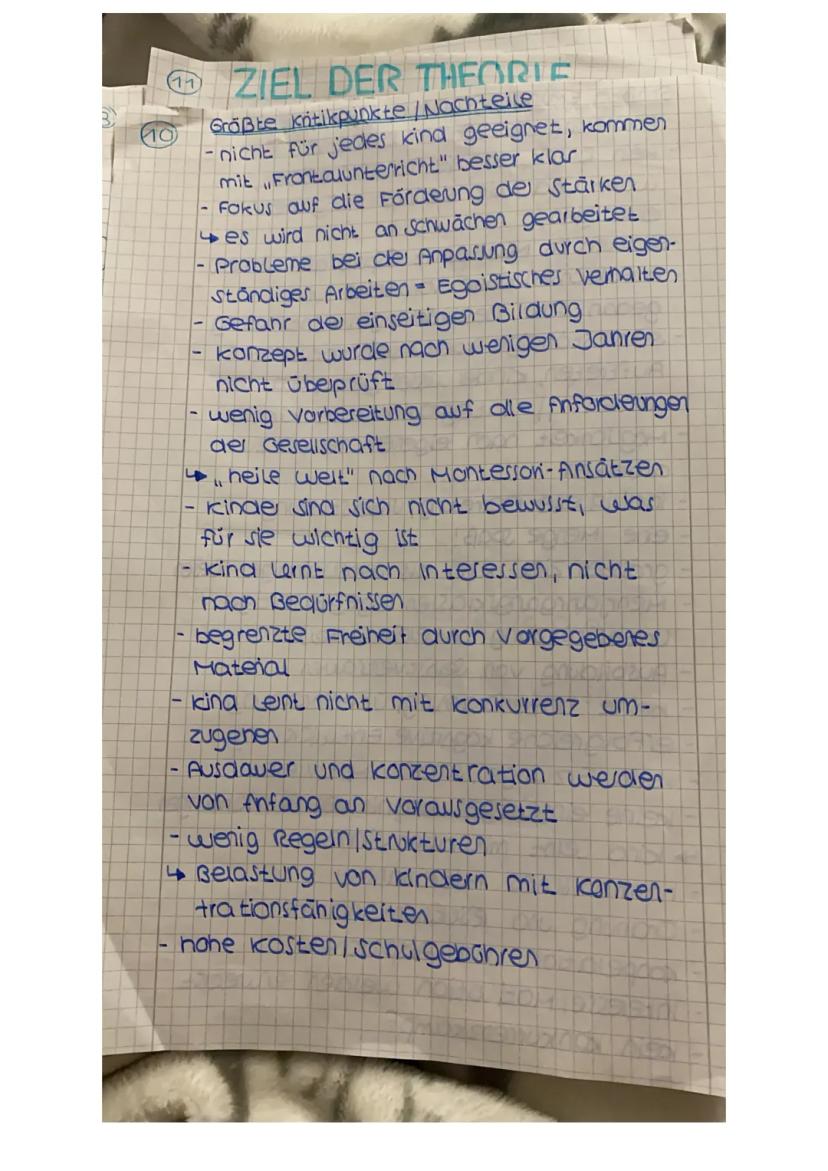 11 ZIEL DER THEORIE
10 Größte Kritikpunkte / Nachteile
- nicht für jedes Kind geeignet, kommen
mit „Frontalunterricht" besser klar
- Fokus auf die Förderung der Stärken
↳ es wird nicht an Schwächen gearbeitet
- Probleme bei der Anpassung durch eigen-
ständiges Arbeiten = Egoistisches Verhalten
- Gefahr der einseitigen Bildung
- Konzept wurde nach wenigen Jahren
nicht überprüft
- wenig Vorbereitung auf die Anforderungen
der Gesellschaft
↳ „heile Welt" nach Montessori-Ansätzen
- Kinder sind sich nicht bewusst, was
für sie wichtig ist
- Kind lernt nach Interessen, nicht
nach Bedürfnissen
- begrenzte Freiheit durch vorgegebenes
Material
- Kind lernt nicht mit Konkurrenz um-
zugehen
- Ausdauer und Konzentration werden
von Anfang an vorausgesetzt
- wenig Regeln/Strukturen
↳ Belastung von Kindern mit Konzen-
trationsfähigkeiten
- hohe Kosten/Schulgebühren